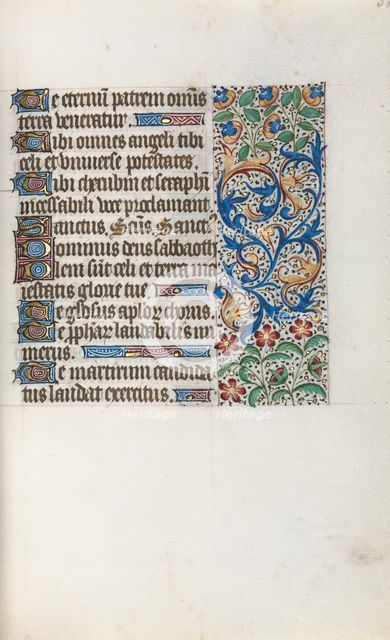 Te eternum patrem omnis
terra veneratur.
Tibi omnes angeli tibi
celi et universe potestates.
Tibi cherubin et seraphin
incessabili voce proclamant
Sanctus. Scūs. Sanct.
Dominus deus sabbaoth
Pleni sūt celi et terra ma
iestatis glorie tue
Te gl̄osus aplōr chorus.
Te ꝓphar laudabilis nu
merus.
Te martirum candida
tus laudat exercitus.
Heritage
Heritage